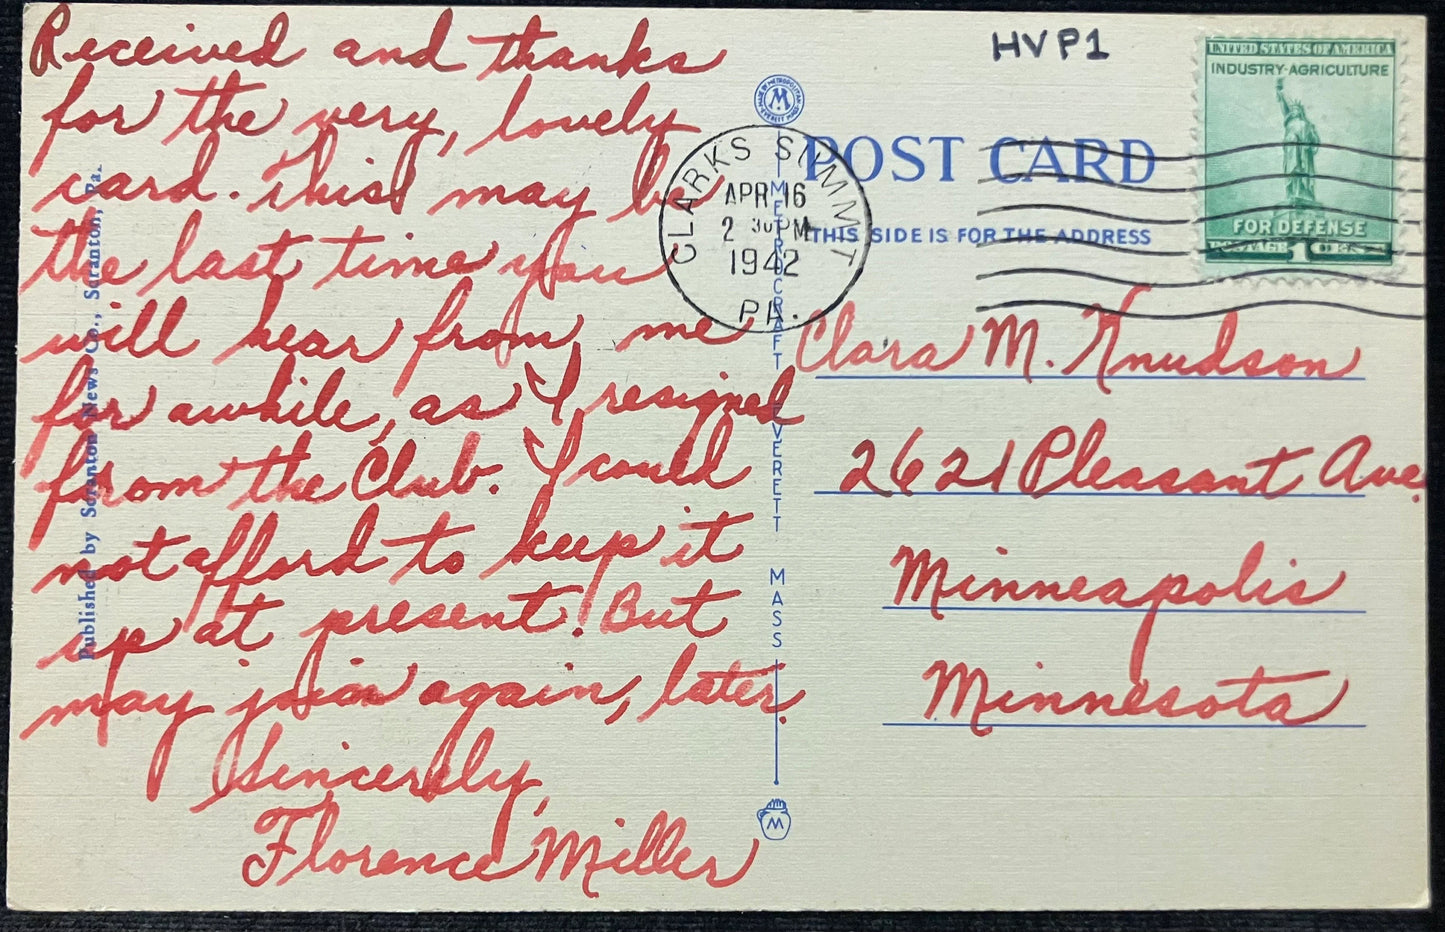 Received and thanks
for the very, lovely
card. This may be
the last time you
will hear from me
for awhile, as I resigned
from the Club. I could
not afford to keep it
up at present. But
may join again, later.
Sincerely,
Florence Miller
Published by Scranton News Co., Scranton, Pa.
MADE BY METROPOLITAN
EVERETT MASS
M
METROCRAFT EVERETT MASS
M
HVP1
POST CARD
THIS SIDE IS FOR THE ADDRESS
CLARKS SUMMIT
APR 16
2 30 PM
1942
PA.
UNITED STATES OF AMERICA
INDUSTRY-AGRICULTURE
FOR DEFENSE
POSTAGE 1 CENT
Clara M. Knudson
2621 Pleasant Ave.
Minneapolis
Minnesota